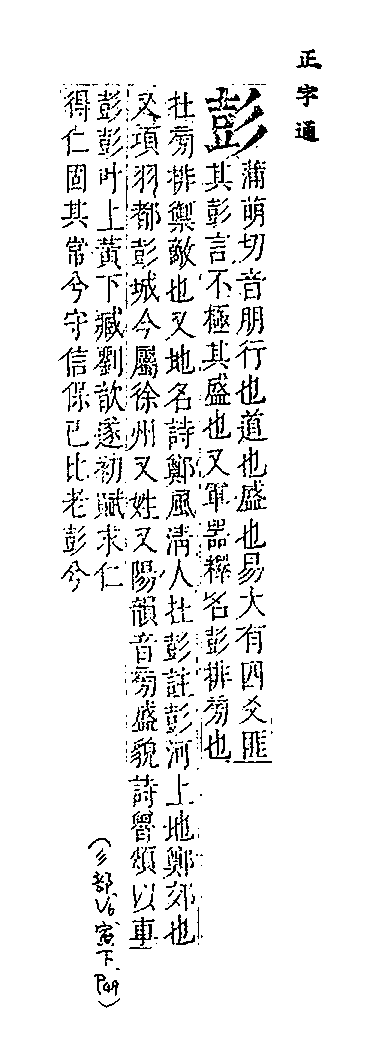 正字通
彭
蒲萌切音朋行也道也盛也易大有四爻匪
其彭言不極其盛也又軍器釋名彭排旁也
在旁排禦敵也又地名詩鄭風淸人在彭註彭河上地鄭郊也
又項羽都彭城今屬徐州又姓又陽韻音旁盛貌詩魯頌以車
彭彭叶上黃下臧劉歆遂初賦求仁
得仁固其常兮守信保已比老彭兮
(彡部 V6 寅下 P49)